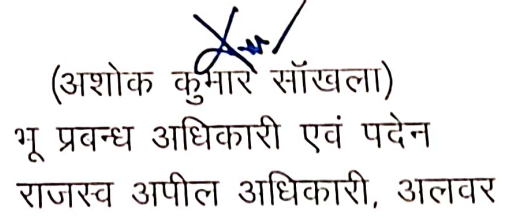 (अशोक कुमार सॉखला)
भू प्रबन्ध अधिकारी एवं पदेन
राजस्व अपील अधिकारी, अलवर